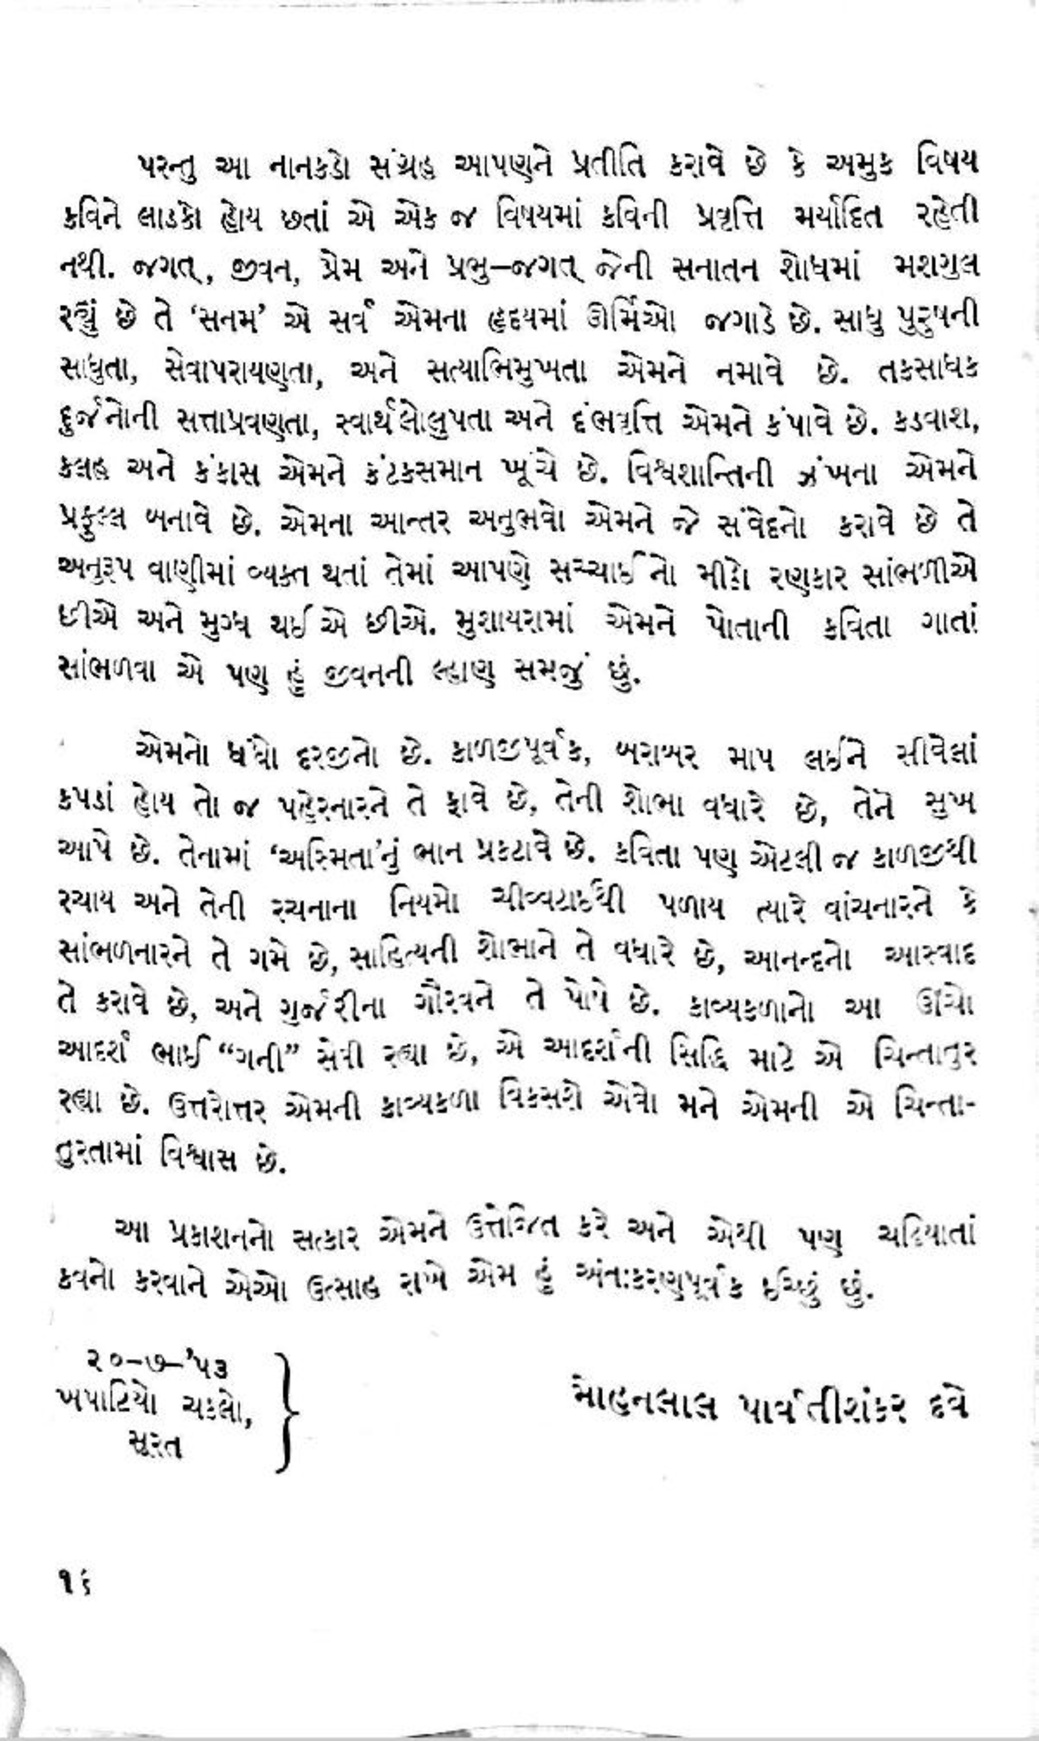 પરન્તુ આ નાનકડો સંગ્રહ આપણને પ્રતીતિ કરાવે છે કે અમુક વિષય
કવિને લાડકો હોય છતાં એ એક જ વિષયમાં કવિની પ્રવૃત્તિ મર્યાદિત રહેતી
નથી. જગત્, જીવન, પ્રેમ અને પ્રભુ–જગત્ જેની સનાતન શોધમાં મશગુલ
રહ્યું છે તે ‘સનમ’ એ સર્વ એમના હૃદયમાં ઊર્મિઓ જગાડે છે. સાધુ પુરુષની
સાધુતા, સેવાપરાયણતા, અને સત્યાભિમુખતા એમને નમાવે છે. તકસાધક
દુર્જનોની સત્તાપ્રવણતા, સ્વાર્થલોલુપતા અને દંભવૃત્તિ એમને કંપાવે છે. કડવાશ,
કલહ અને કંકાસ એમને કંટકસમાન ખૂંચે છે. વિશ્વશાન્તિની ઝંખના એમને
પ્રફુલ્લ બનાવે છે. એમના આન્તર અનુભવો એમને જે સંવેદનો કરાવે છે તે
અનુરૂપ વાણીમાં વ્યક્ત થતાં તેમાં આપણે સચ્ચાઈનો મીઠો રણકાર સાંભળીએ
છીએ અને મુગ્ધ થઈ એ છીએ. મુશાયરામાં એમને પોતાની કવિતા ગાતાં
સાંભળવા એ પણ હું જીવનની લ્હાણ સમજું છું.
એમનો ધંધો દરજીનો છે. કાળજીપૂર્વક, બરાબર માપ લઈને સીવેલાં
કપડાં હોય તો જ પહેરનારને તે ફાવે છે, તેની શોભા વધારે છે, તેને સુખ
આપે છે. તેનામાં ‘અસ્મિતા’નું ભાન પ્રકટાવે છે. કવિતા પણ એટલી જ કાળજીથી
રચાય અને તેની રચનાના નિયમો ચીવ્વટાઈથી પળાય ત્યારે વાંચનારને કે
સાંભળનારને તે ગમે છે, સાહિત્યની શોભાને તે વધારે છે, આનન્દનો આસ્વાદ
તે કરાવે છે, અને ગુર્જરીના ગૌરવને તે પોષે છે. કાવ્યકળાનો આ ઊંચો
આદર્શ ભાઈ “ગની” સેવી રહ્યા છે, એ આદર્શની સિદ્ધિ માટે એ ચિન્તાતુર
રહ્યા છે. ઉત્તરોત્તર એમની કાવ્યકળા વિકસશે એવો મને એમની એ ચિન્તા-
તુરતામાં વિશ્વાસ છે.
આ પ્રકાશનનો સત્કાર એમને ઉત્તેજિત કરે અને એથી પણ ચઢિયાતાં
કવનો કરવાને એઓ ઉત્સાહ રાખે એમ હું અંતઃકરણપૂર્વક ઈચ્છું છું.
૨૦–૭–’૫૩
ખપાટિયો ચકલો,
સૂરત
મોહનલાલ પાર્વતીશંકર દવે
૧૬